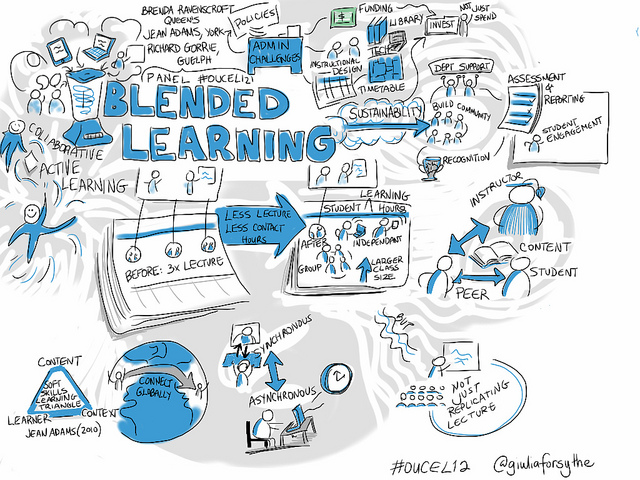 BRENDA RAVENSCROFT
QUEENS
JEAN ADAMS, YORK
RICHARD GORRIE,
GUELPH
PANEL #OUCEL12
POLICIES
ADMIN
CHALLENGES
FUNDING
LIBRARY
TECH
INSTRUCTIONAL
DESIGN
TIMETABLE
INVEST
NOT JUST
SPEND
BLENDED
LEARNING
SUSTAINABILITY
DEPT SUPPORT
BUILD COMMUNITY
RECOGNITION
ASSESSMENT
&
REPORTING
STUDENT
ENGAGEMENT
COLLABORATIVE
ACTIVE
LEARNING
BEFORE: 3x LECTURE
LESS LECTURE
LESS CONTACT
HOURS
LEARNING
STUDENT HOURS
AFTER
INDEPENDANT
GROUP
LARGER
CLASS
SIZE
INSTRUCTOR
CONTENT
STUDENT
PEER
CONTENT
SOFT
SKILLS
LEARNING
TRIANGLE
LEARNER
CONTEXT
JEAN ADAMS (2010)
CONNECT
GLOBALLY
SYNCHRONOUS
ASYNCHRONOUS
BUT
NOT
JUST
REPLICATING
LECTURE
#OUCEL12 @giuliaforsythe